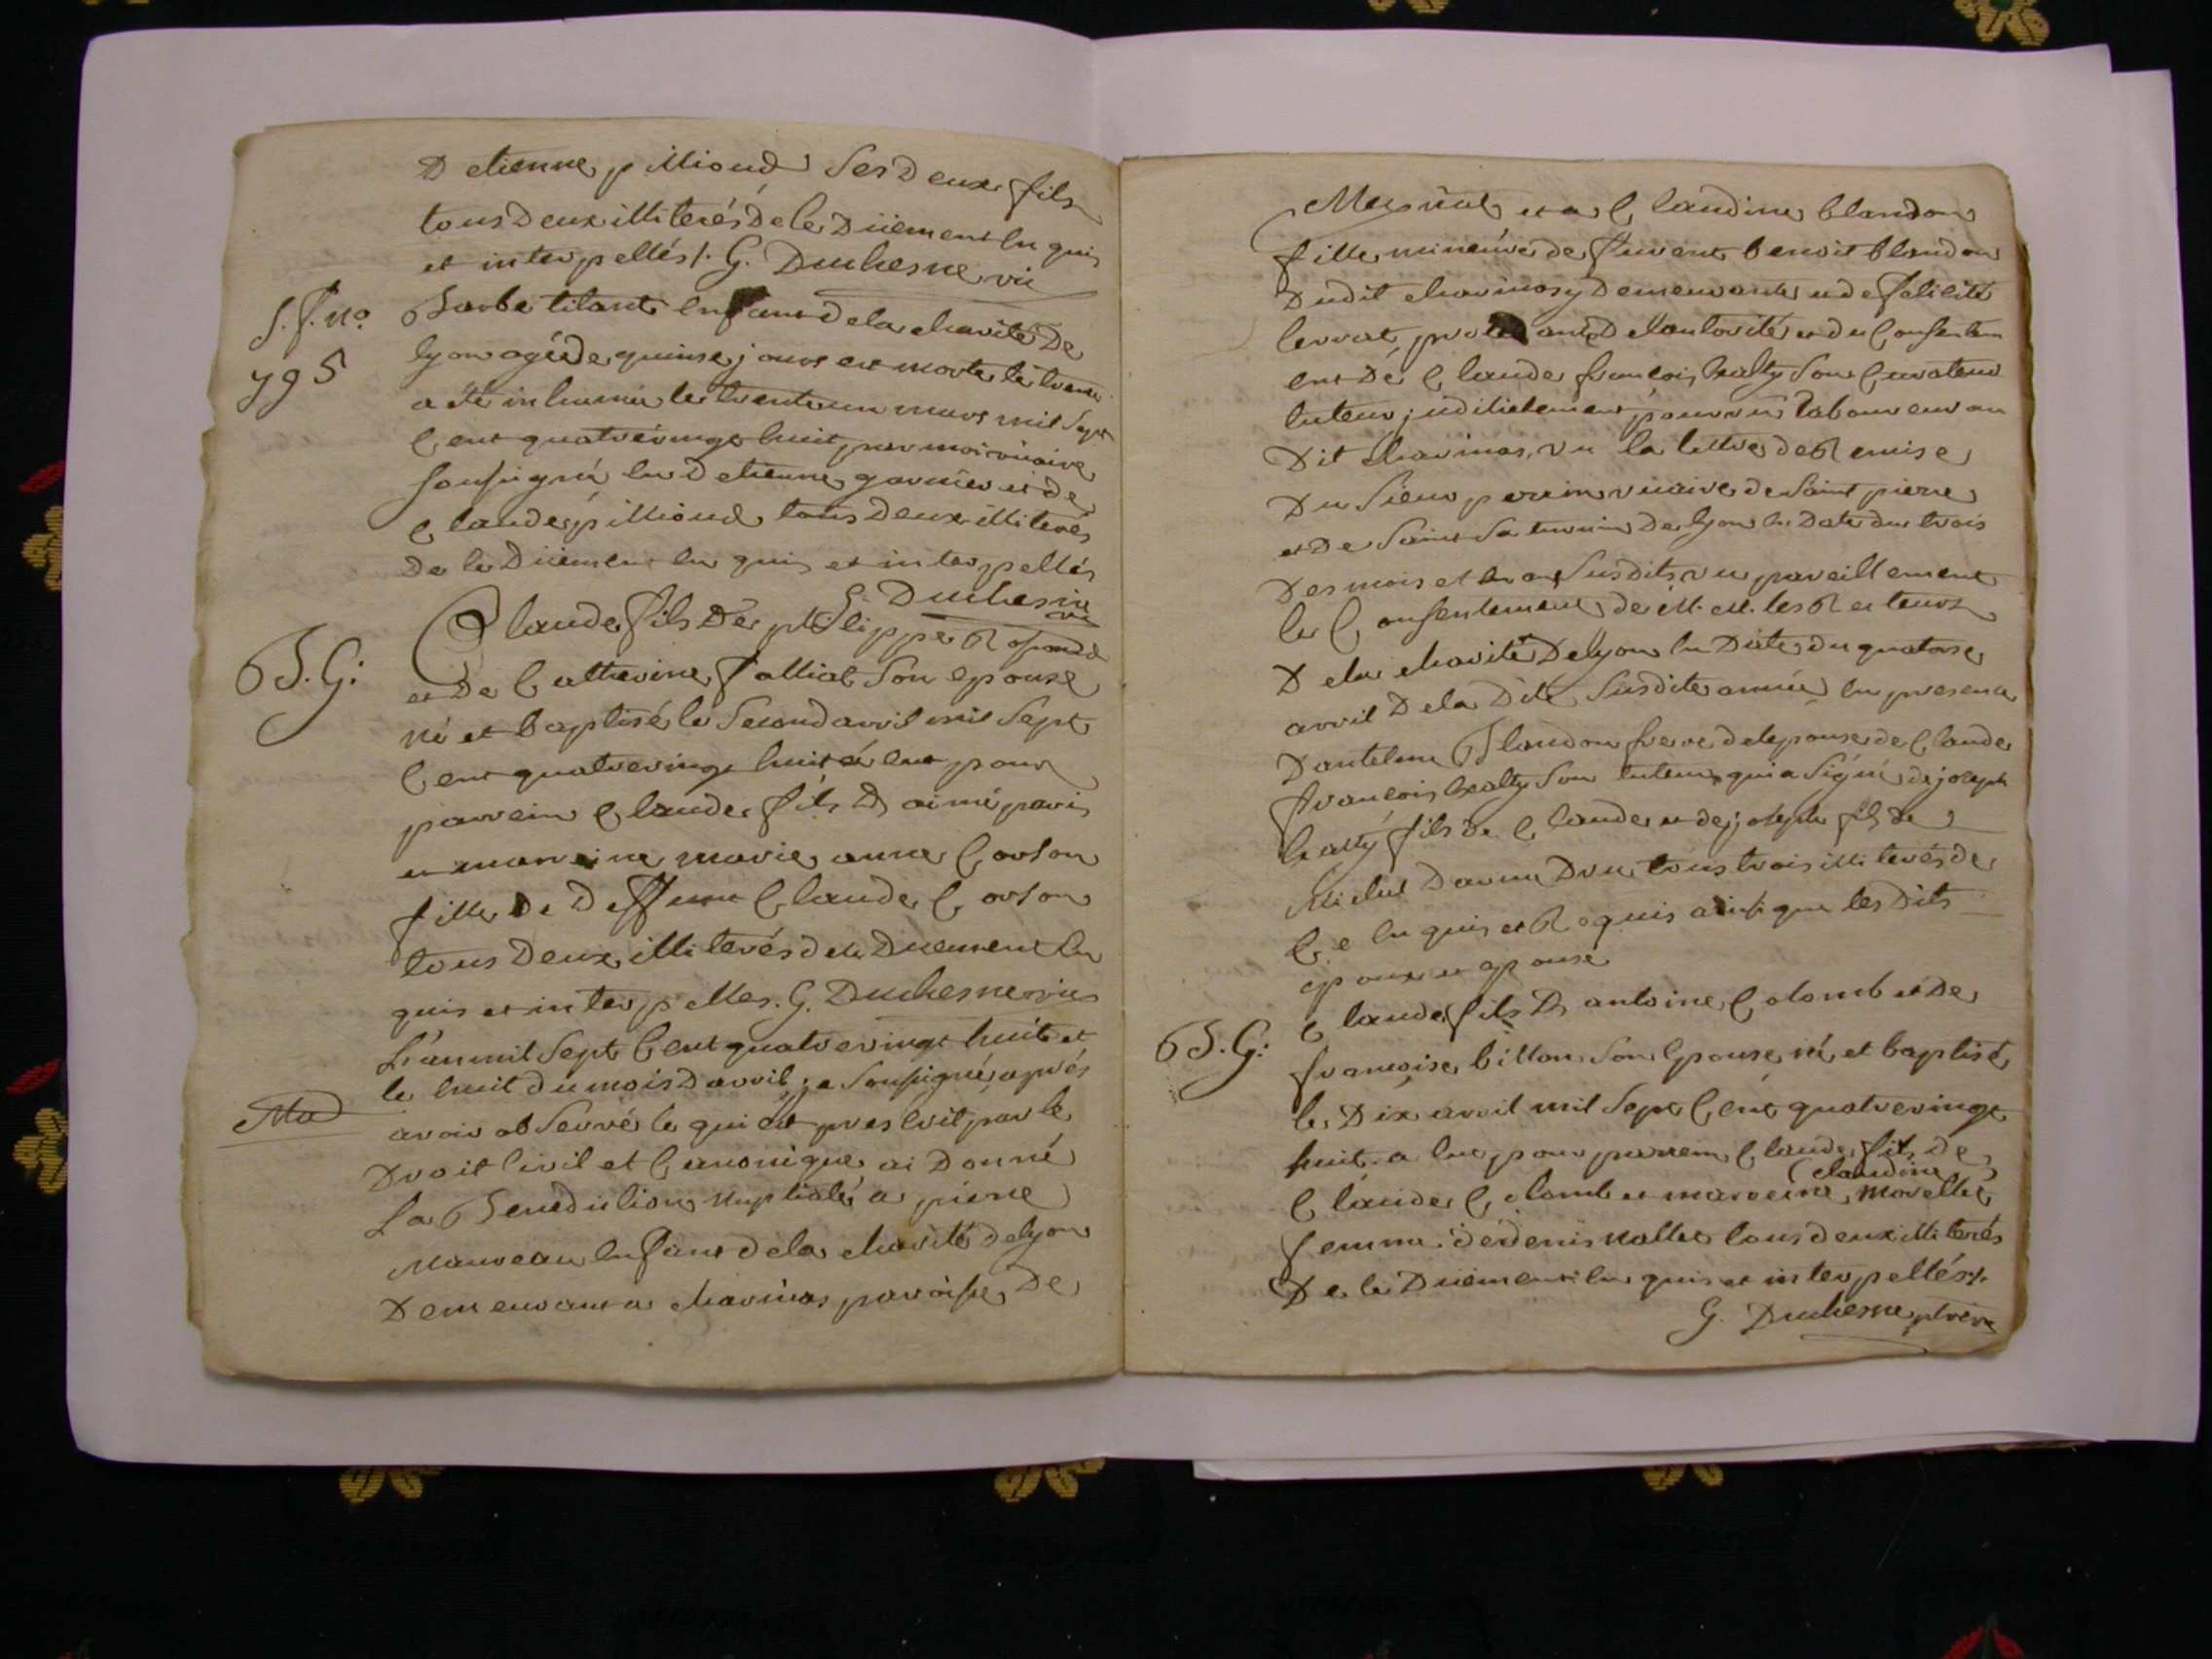 D etienne pillioud Ses Deux fils
tous Deux illiterés de ce Düement en quis
et interpellés /. G. Duchesne vic
S. f. no
795
Barbe titant enfant de la charité De
lyon agée de quinse jours est morte le trente
a été inhumée le trente un mars mil Sept
Cent quatrevingt huit par moi vicaire
Soussigné en D etienne garnier et de
Claude pillioud tous Deux illiterés
De ce Düement en quis et interpellés
G. Duchesne vic
B. G.
Claude fils De philippe
et De Catherine falliat Son epouse
né et baptisé le Second avril mil Sept
Cent quatrevingt huit à eut pour
parrein Claude fils D aimé paris
et marreine marie anne Corson
fille De Deffunt Claude Corson
tous Deux illiterés de ce Duement en
quis et interpelles. G. Duchesne vic
L'an mil Sept Cent quatrevingt huit et
Ma
le huit du mois D avril je Soussigné après
avoir observé ce qui est prescrit par le
Droit Civil et Canonique ai Donné
La Benediction nuptiale a pierre
Manveau enfant de la charité de lyon
Demeurant a charinas paroisse De
et a Claudine blandon
fille mineure de fuvent benoit blandon
Dudit charinas y Demeurante et de felicité
lervat, De l'autorité et du Consentem
ent De Claude françois Sou Curateur
tuteur judicielement pourvu laboureur au
Dit charinas, vu la lettre de Remise
Du Sieur perrin vicaire de Saint pierre
et De Saint Saturnin De lyon en Date du trois
Des mois et an Susdits, vu pareillement
le Consentement de M. M. les Recteurs
De la charité De lyon en Date du quatorse
avril De la Dite Susdite année en presence
D antelme Blandon frere de l epouse de Claude
françois Son tuteur qui a Signé de joseph
fils de Claude et de joseph fils de
Michel tous trois illiterés de
Ce en quis et Requis ainsi que les Dits
epoux et epouse
B. G.
Claude fils D antoine Colomb et De
francoise billon Son Epouse né et baptisé
le Dix avril mil Sept Cent quatrevingt
huit a eut pour parrein Claude fils De
Claude Colomb et marreine claudine morellet
femme de denis nallet tous deux illiterés
De ce Düement en quis et interpellés /.
G. Duchesne